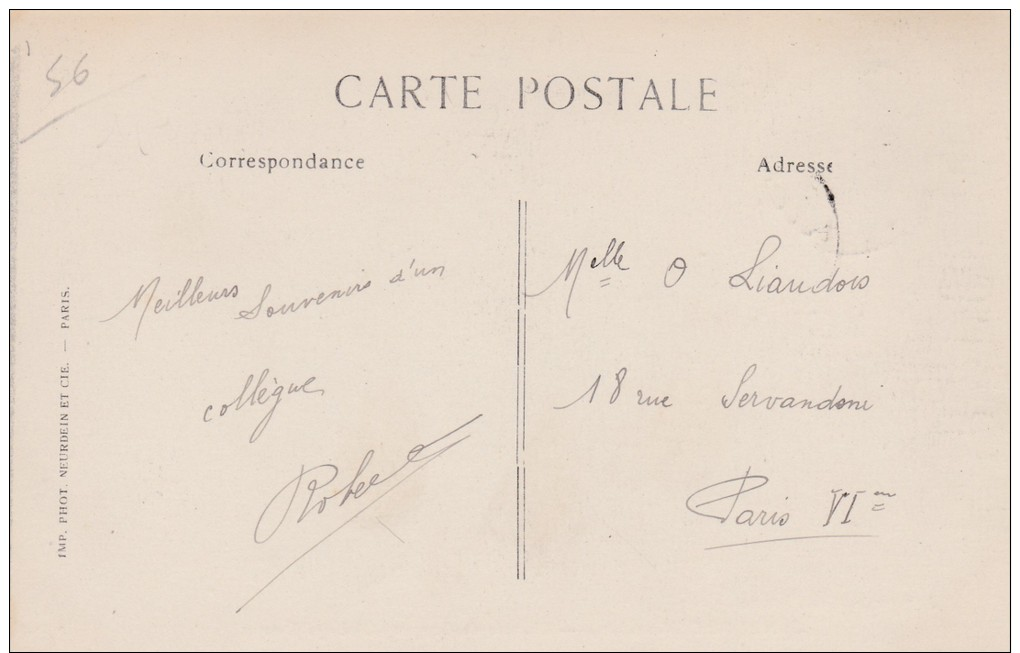 56
CARTE POSTALE
Correspondance
Adresse
Meilleurs Souvenirs d'un
collègue
Melle O Liaudois
18 rue Servandoni
Paris VIem
IMP. PHOT. NEURDEIN ET CIE. — PARIS.